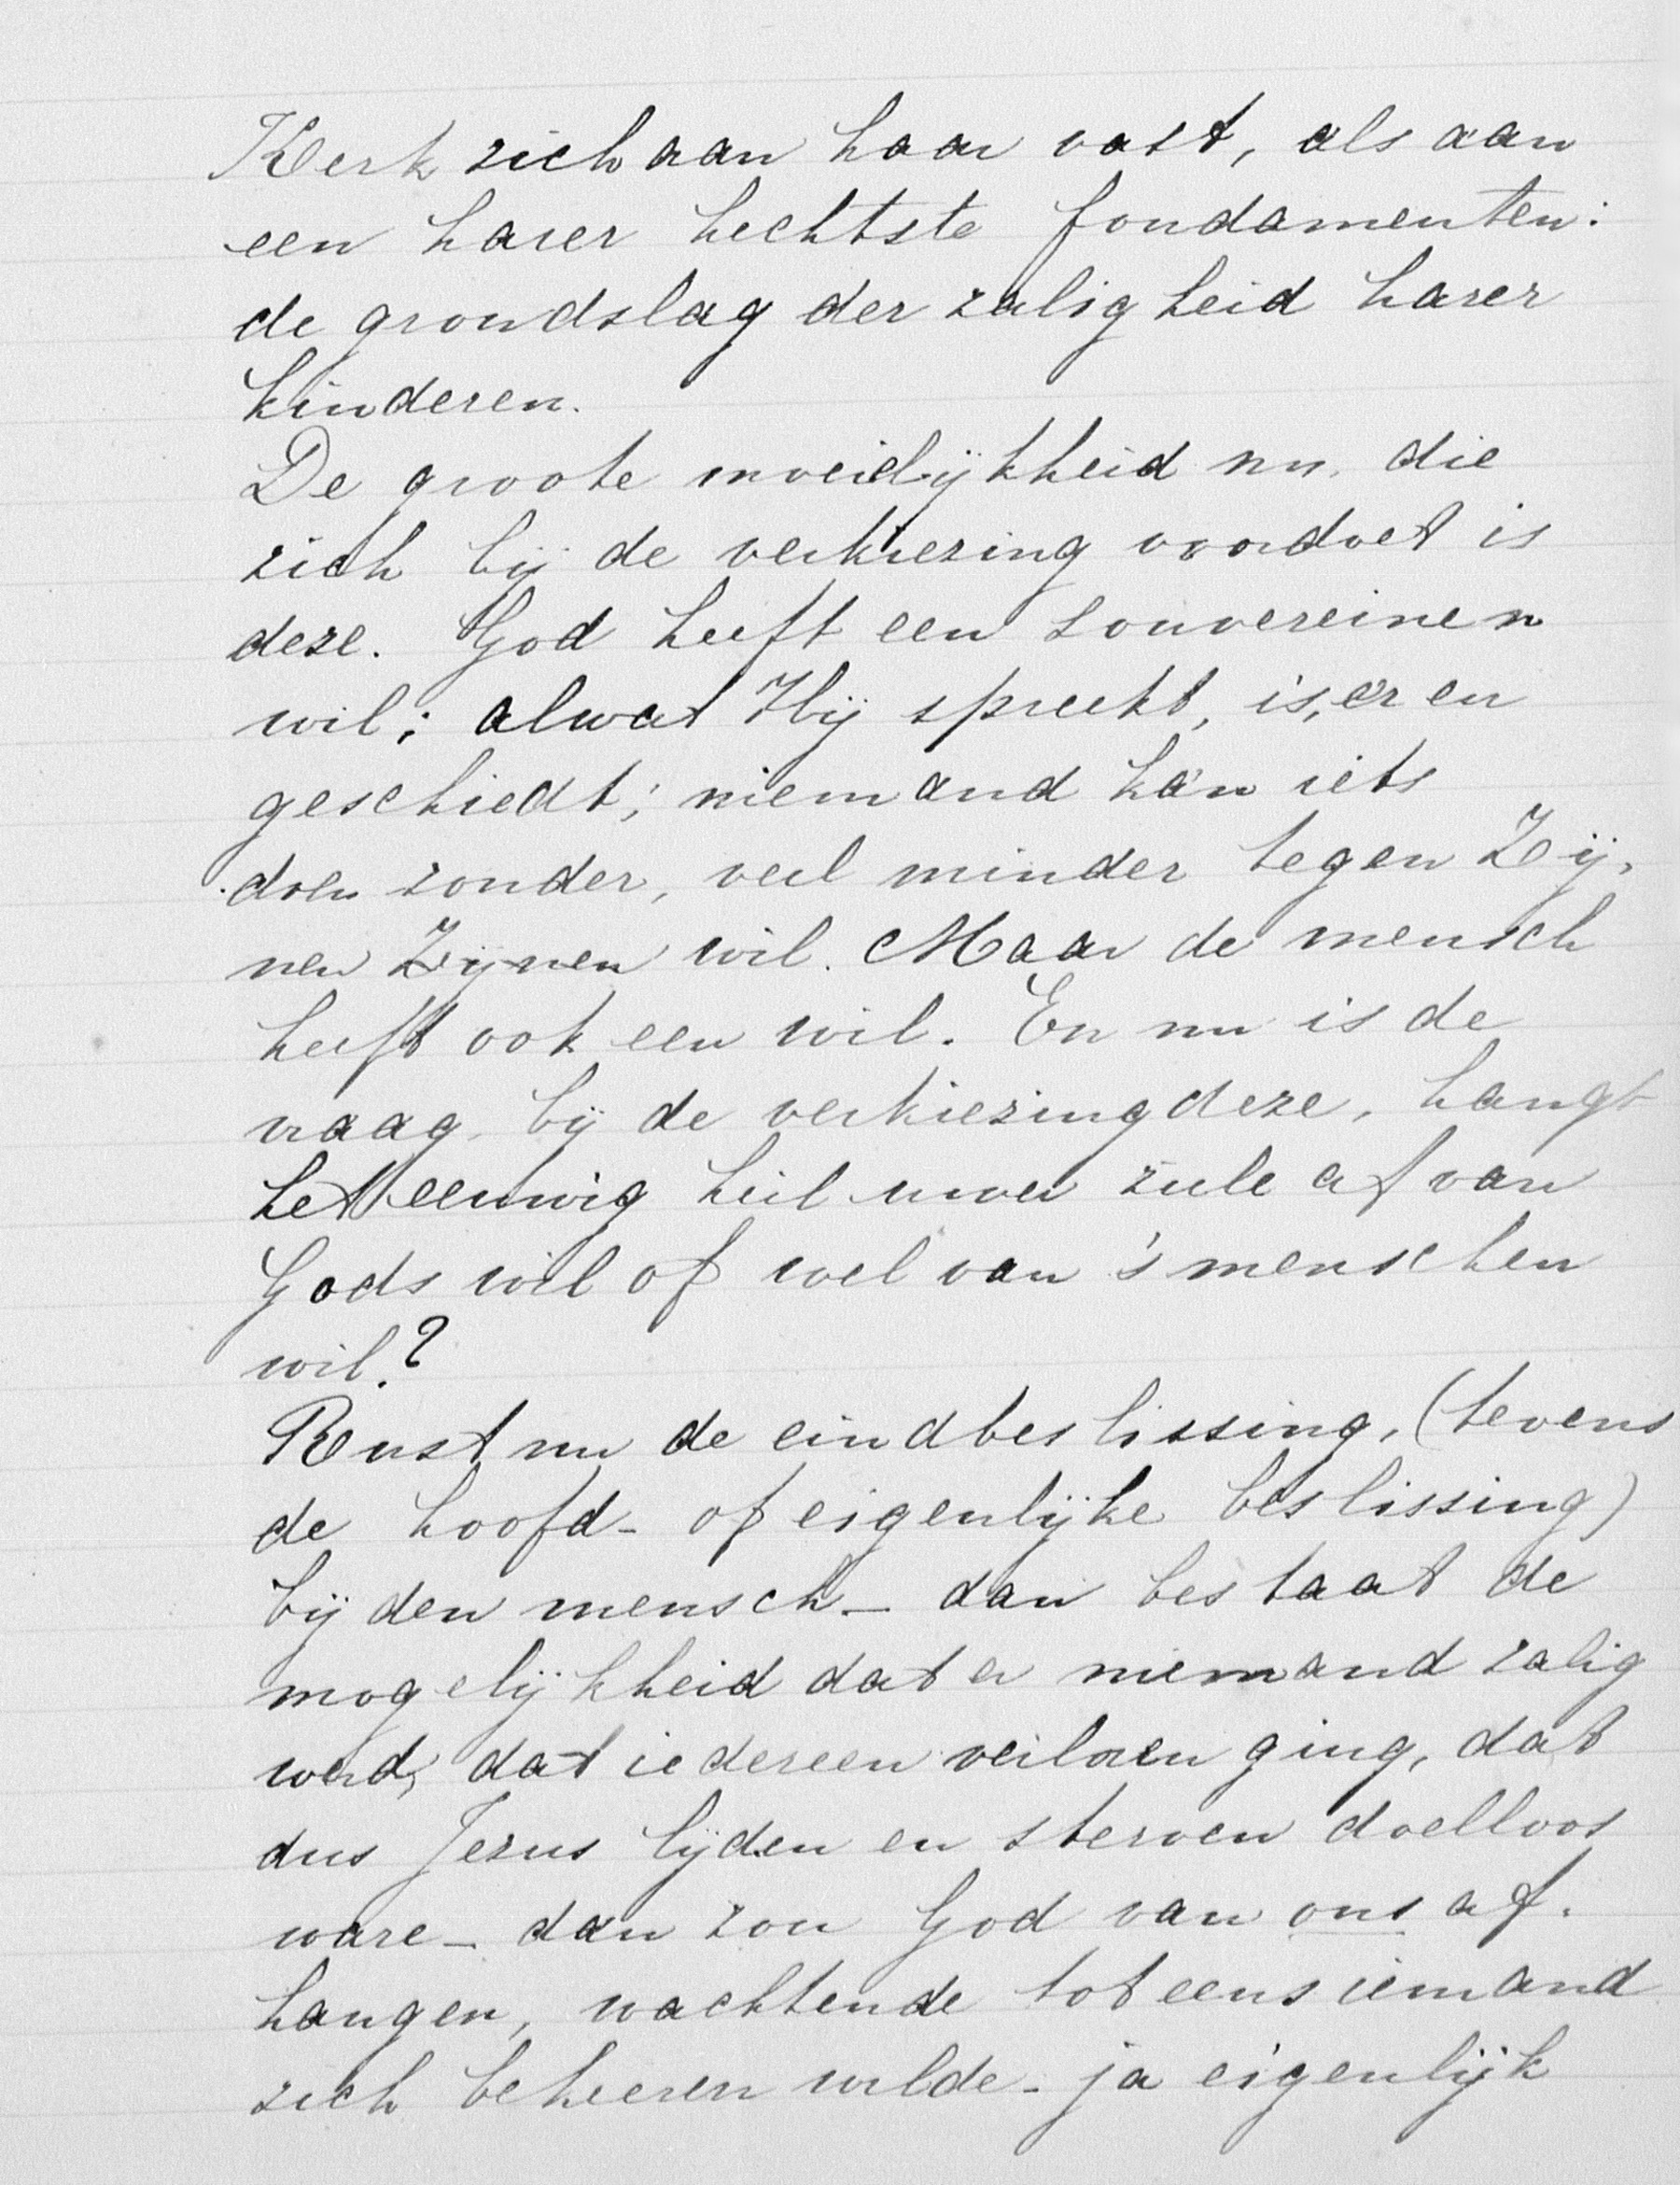 Kerk zich aan haar vast, als aan
een harer hechtste fondamenten:
de grondslag der zaligheid harer
kinderen.
De groote moeielijkheid nu, die
zich bij de verkiezing voordoet is
deze. God heeft een souvereinen
wil; alwat Hij spreekt, is er en
geschiedt; niemand kan iets
doen zonder, veel minder tegen Zij-
nen Zijnen wil. Maar de mensch
heeft ook een wil. En nu is de
vraag bij de verkiezing deze, hangt
het eeuwig heil uwer ziele af van
Gods wil of wel van 's menschen
wil?
Rust nu de eindbeslissing, (tevens
de hoofd- of eigenlijke beslissing)
bij den mensch - dan bestaat de
mogelijkheid dat er niemand zalig
werd, dat iedereen verloren ging, dat
dus Jezus lijden en sterven doelloos
ware - dan zou God van ons af-
hangen, wachtende tot eens iemand
zich bekeeren wilde - ja eigenlijk